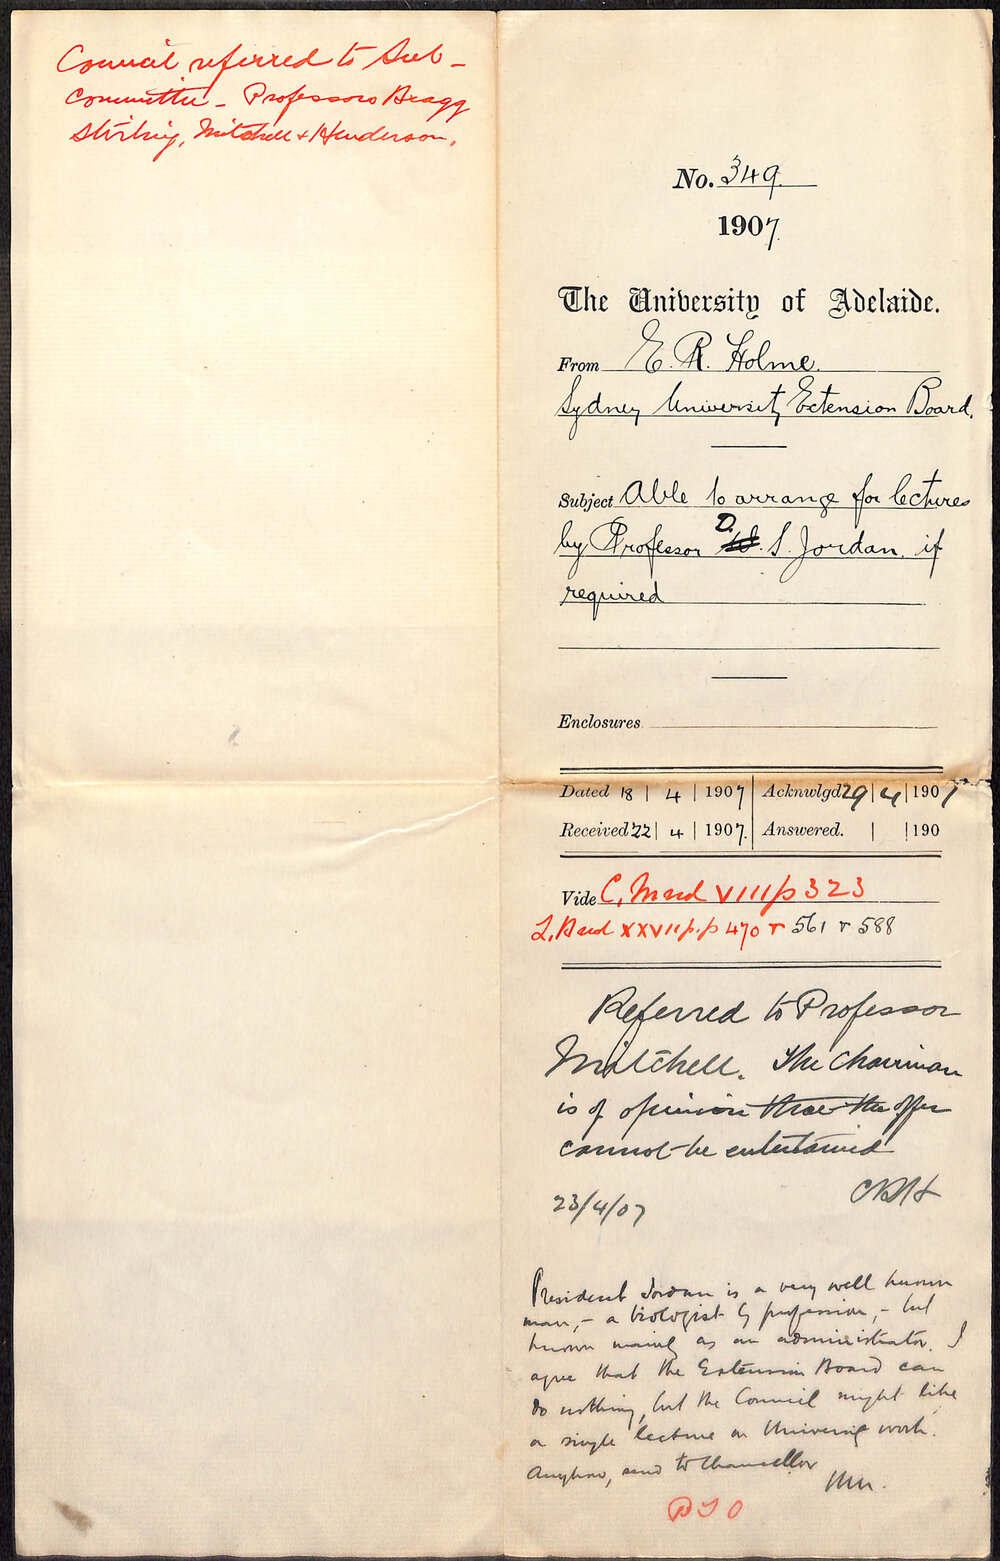 Council referred to Sub-
Committee - Professors Bragg
Stirling, Mitchell & Henderson.
No. 349.
1907.
The University of Adelaide.
From E. R. Holme.
Sydney University Extension Board.
Subject Able to arrange for lectures
by Professor D. S. Jordan. if
required
Enclosures
Dated 18 | 4 | 1907 Acknwlgd 29 | 4 | 1907
Received 22 | 4 | 1907. Answered. | | 190
Vide C. VIII p 323
XXVII p.p 470 + 561 + 588
Referred to Professor
Mitchell. The Chairman
is of opinion that the offer
cannot be entertained
23/4/07
President Jordan is a very well known
man, - a biologist by profession, - but
known mainly as an administrator. I
agree that the Extension Board can
do nothing, but the Council might like
a single lecture on University work.
Anyhow, send to Chancellor
WM.
PTO